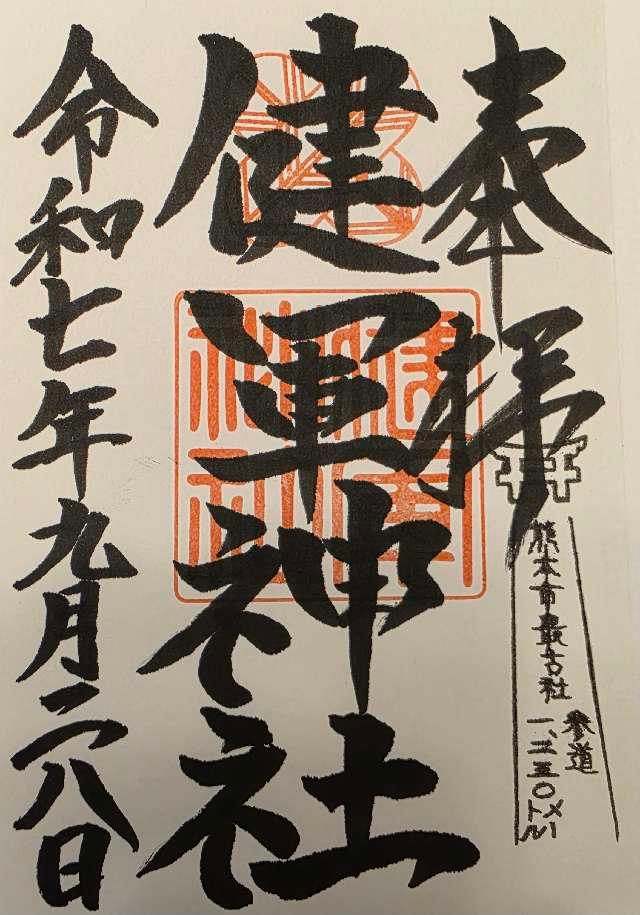 奉拝
熊本市最古社
参道
一、二五〇メートル
健軍神社
健軍神社
令和七年九月二八日